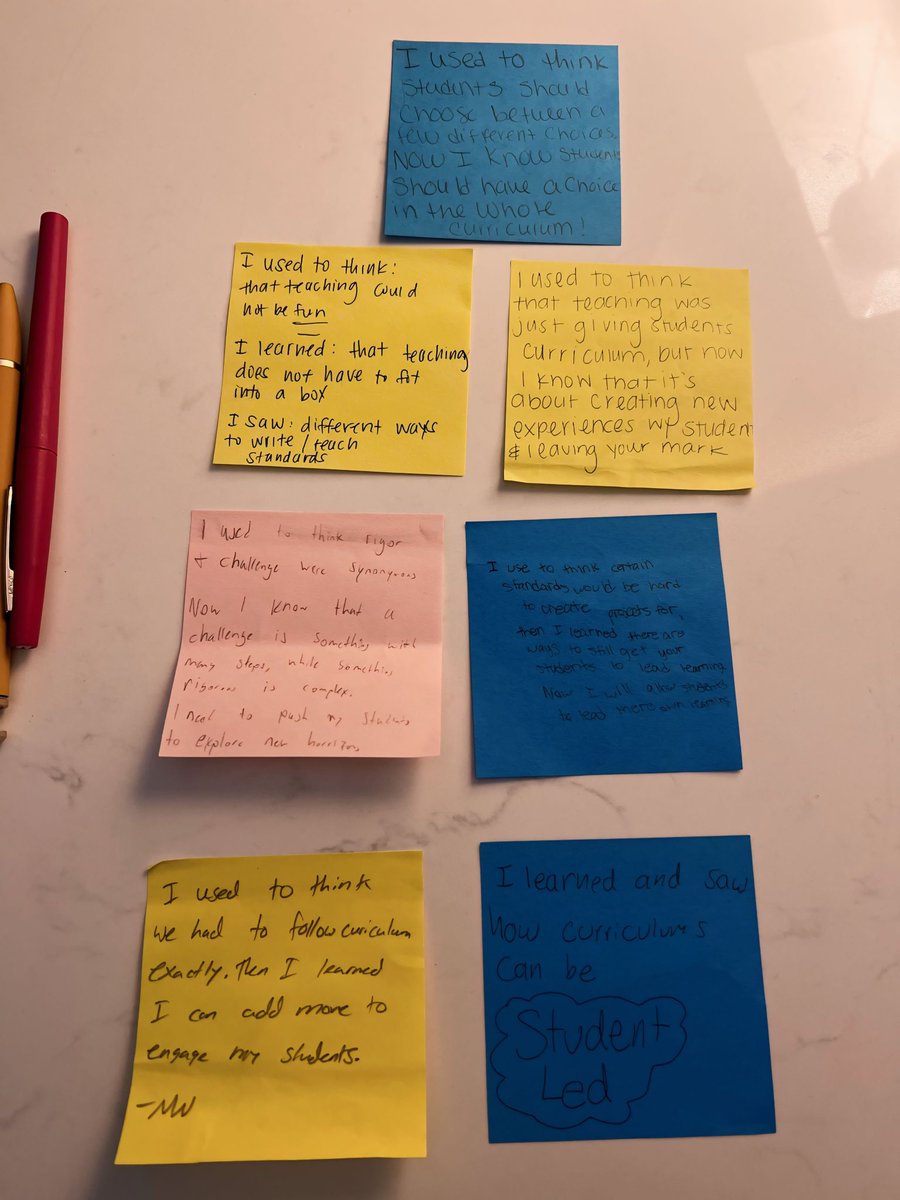 I used to think
students should
choose between a
few different choices.
Now I know students
should have a choice
in the whole
curriculum!
I used to think:
that teaching could
not be fun
I learned: that teaching
does not have to fit
into a box
I saw: different ways
to write/teach
standards
I used to think
that teaching was
just giving students
curriculum, but now
I know that it's
about creating new
experiences w/ student
& leaving your mark
I used to think rigor
+ challenge were synonymous
Now I know that a
challenge is something with
many steps, while something
rigorous is complex.
I need to push my students
to explore new horrizons
I use to think certain
standards would be hard
to create projects for,
then I learned there are
ways to still get your
students to lead learning.
Now I will allow students
to lead there own learning
I used to think
we had to follow curiculum
exactly. Then I learned
I can add more to
engage my students.
-MW
I learned and saw
how curriculums
can be
Student
Led